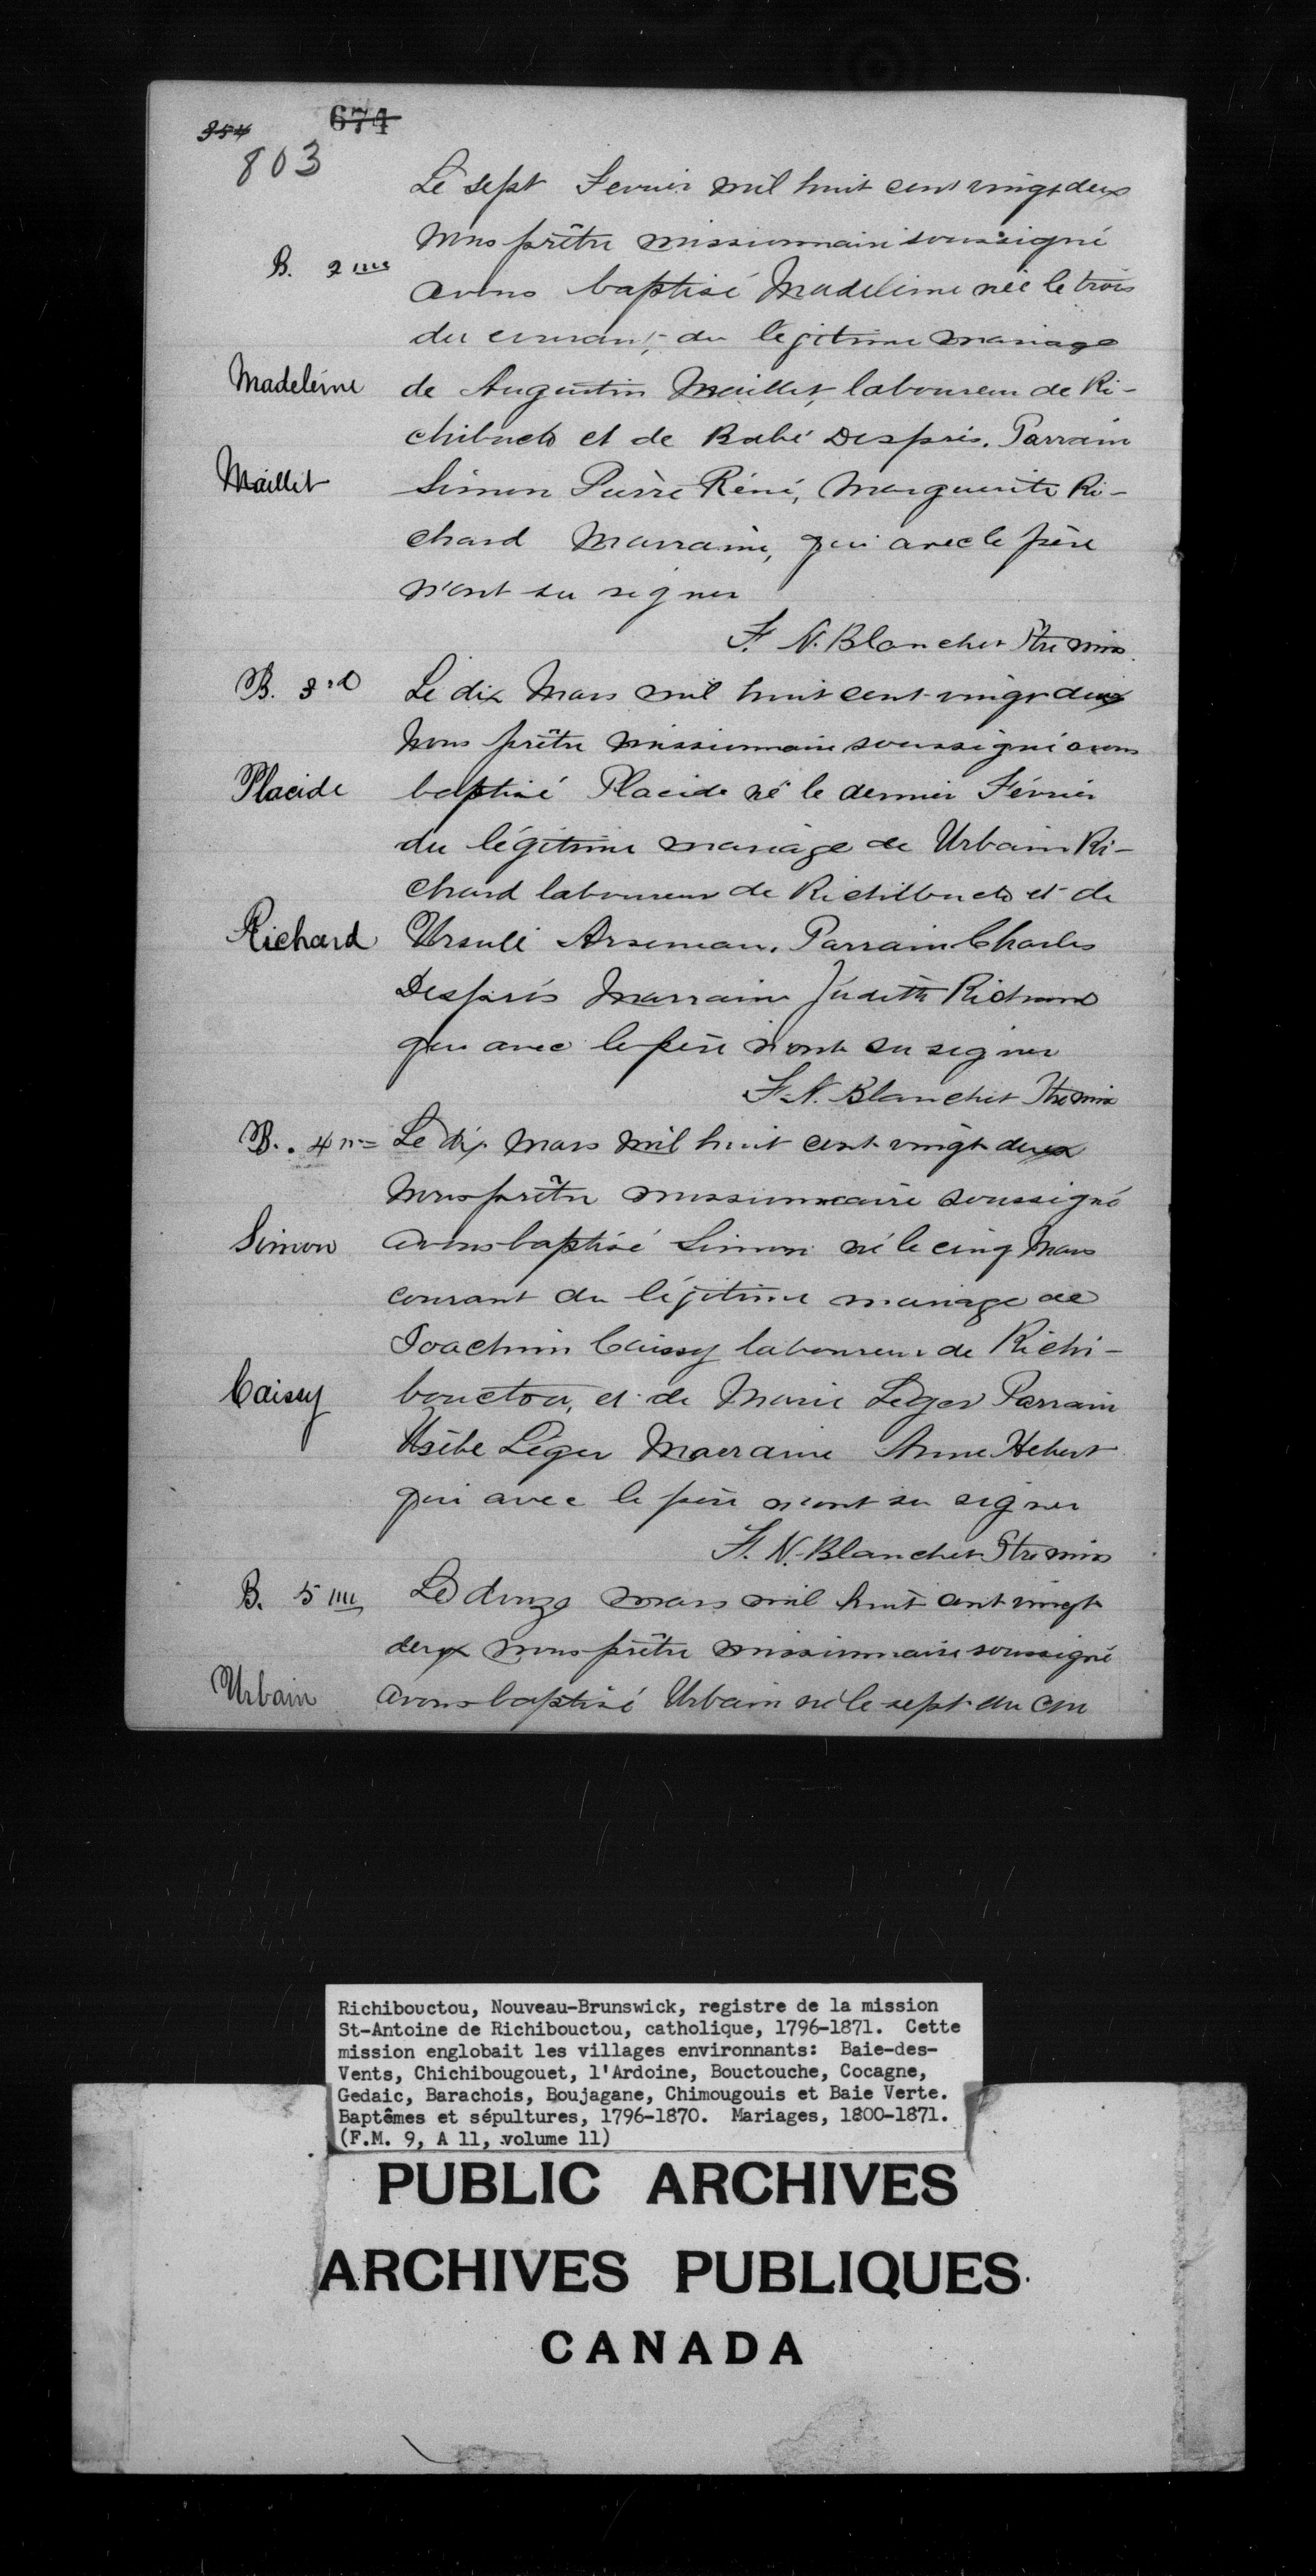 354 674
803
Le sept Fevrier mil huit cent vingt deux
nous prêtre missionnaire soussigné
B. 2me
avons baptisé Madeleine née le trois
du courant, du légitime mariage
Madeleine
de Augustin Maillet, laboureur de Ri-
chibucto et de Babé Després. Parrain
Maillet
Simon Pierre Réné, Marguerite Ri-
chard Marraine, qui avec le père
n'ont su signer
F. N. Blanchet Ptre miss.
B. 3rd
Le dix Mars mil huit cent vingt deux
nous prêtre missionnaire soussigné avons
Placide
baptisé Placide né le dernier Février
du légitime mariage de Urbain Ri-
chard laboureur de Richilbucto et de
Richard
Ursule Arseneau. Parrain Charles
Després Marraine Judith Richard
qui avec le père n'ont su signer
F. N. Blanchet Ptre miss
B. 4me
Le dix Mars mil huit cent vingt deux
nous prêtre missionnaire soussigné
Simon
avons baptisé Simon né le cinq Mars
courant du légitime mariage de
Joachim Caissy laboureur de Richi-
Caissy
bouctou, et de Marie Léger Parrain
Usèbe Léger Marraine Anne Hebert
qui avec le père n'ont su signer
F. N. Blanchet Ptre miss
B. 5me
Le douze mars mil huit cent vingt
deux nous prêtre missionnaire soussigné
Urbain
avons baptisé Urbain né le sept du cou
Richibouctou, Nouveau-Brunswick, registre de la mission
St-Antoine de Richibouctou, catholique, 1796-1871. Cette
mission englobait les villages environnants: Baie-des-
Vents, Chichibougouet, l'Ardoine, Bouctouche, Cocagne,
Gedaic, Barachois, Boujagane, Chimougouis et Baie Verte.
Baptêmes et sépultures, 1796-1870. Mariages, 1800-1871.
(F.M. 9, A 11, volume 11)
PUBLIC ARCHIVES
ARCHIVES PUBLIQUES
CANADA